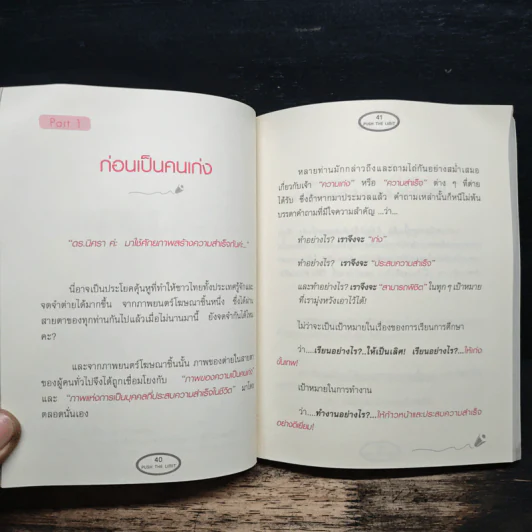 Part 1
ก่อนเป็นคนเก่ง
"ดร.นิศรา ค่ะ มาใช้ศักยภาพสร้างความสำเร็จกันค่ะ..."
นี่อาจเป็นประโยคคุ้นหูที่ทำให้ชาวไทยทั้งประเทศรู้จักและ
จดจำต่ายได้มากขึ้น จากภาพยนตร์โฆษณาชิ้นหนึ่ง ซึ่งได้ผ่าน
สายตาของทุกท่านกันไปแล้วเมื่อไม่นานมานี้ ยังจดจำกันได้ไหม
คะ?
และจากภาพยนตร์โฆษณาชิ้นนั้น ภาพของต่ายในสายตา
ของผู้คนทั่วไปจึงได้ถูกเชื่อมโยงกับ "ภาพของความเป็นคนเก่ง"
และ "ภาพแห่งการเป็นบุคคลที่ประสบความสำเร็จในชีวิต" มาโดย
ตลอดนั่นเอง
40
PUSH THE LIMIT
41
PUSH THE LIMIT
หลายท่านมักกล่าวถึงและถามไถ่กันอย่างสม่ำเสมอ
เกี่ยวกับเจ้า "ความเก่ง" หรือ "ความสำเร็จ" ต่าง ๆ ที่ต่าย
ได้รับ ซึ่งถ้าหากมาประมวลแล้ว คำถามเหล่านั้นก็หนีไม่พ้น
บรรดาคำถามที่มีใจความสำคัญ ...ว่า...
ทำอย่างไร? เราจึงจะ "เก่ง"
ทำอย่างไร? เราจึงจะ "ประสบความสำเร็จ"
และทำอย่างไร? เราจึงจะ "สามารถพิชิต" ในทุก ๆ เป้าหมาย
ที่เรามุ่งหวังเอาไว้ได้!
ไม่ว่าจะเป็นเป้าหมายในเรื่องของการเรียนการศึกษา
ว่า....เรียนอย่างไร?..ให้เป็นเลิศ! เรียนอย่างไร?...ให้เก่ง
ขั้นเทพ!
เป้าหมายในการทำงาน
ว่า....ทำงานอย่างไร?...ให้ก้าวหน้าและประสบความสำเร็จ
อย่างดีเยี่ยม!